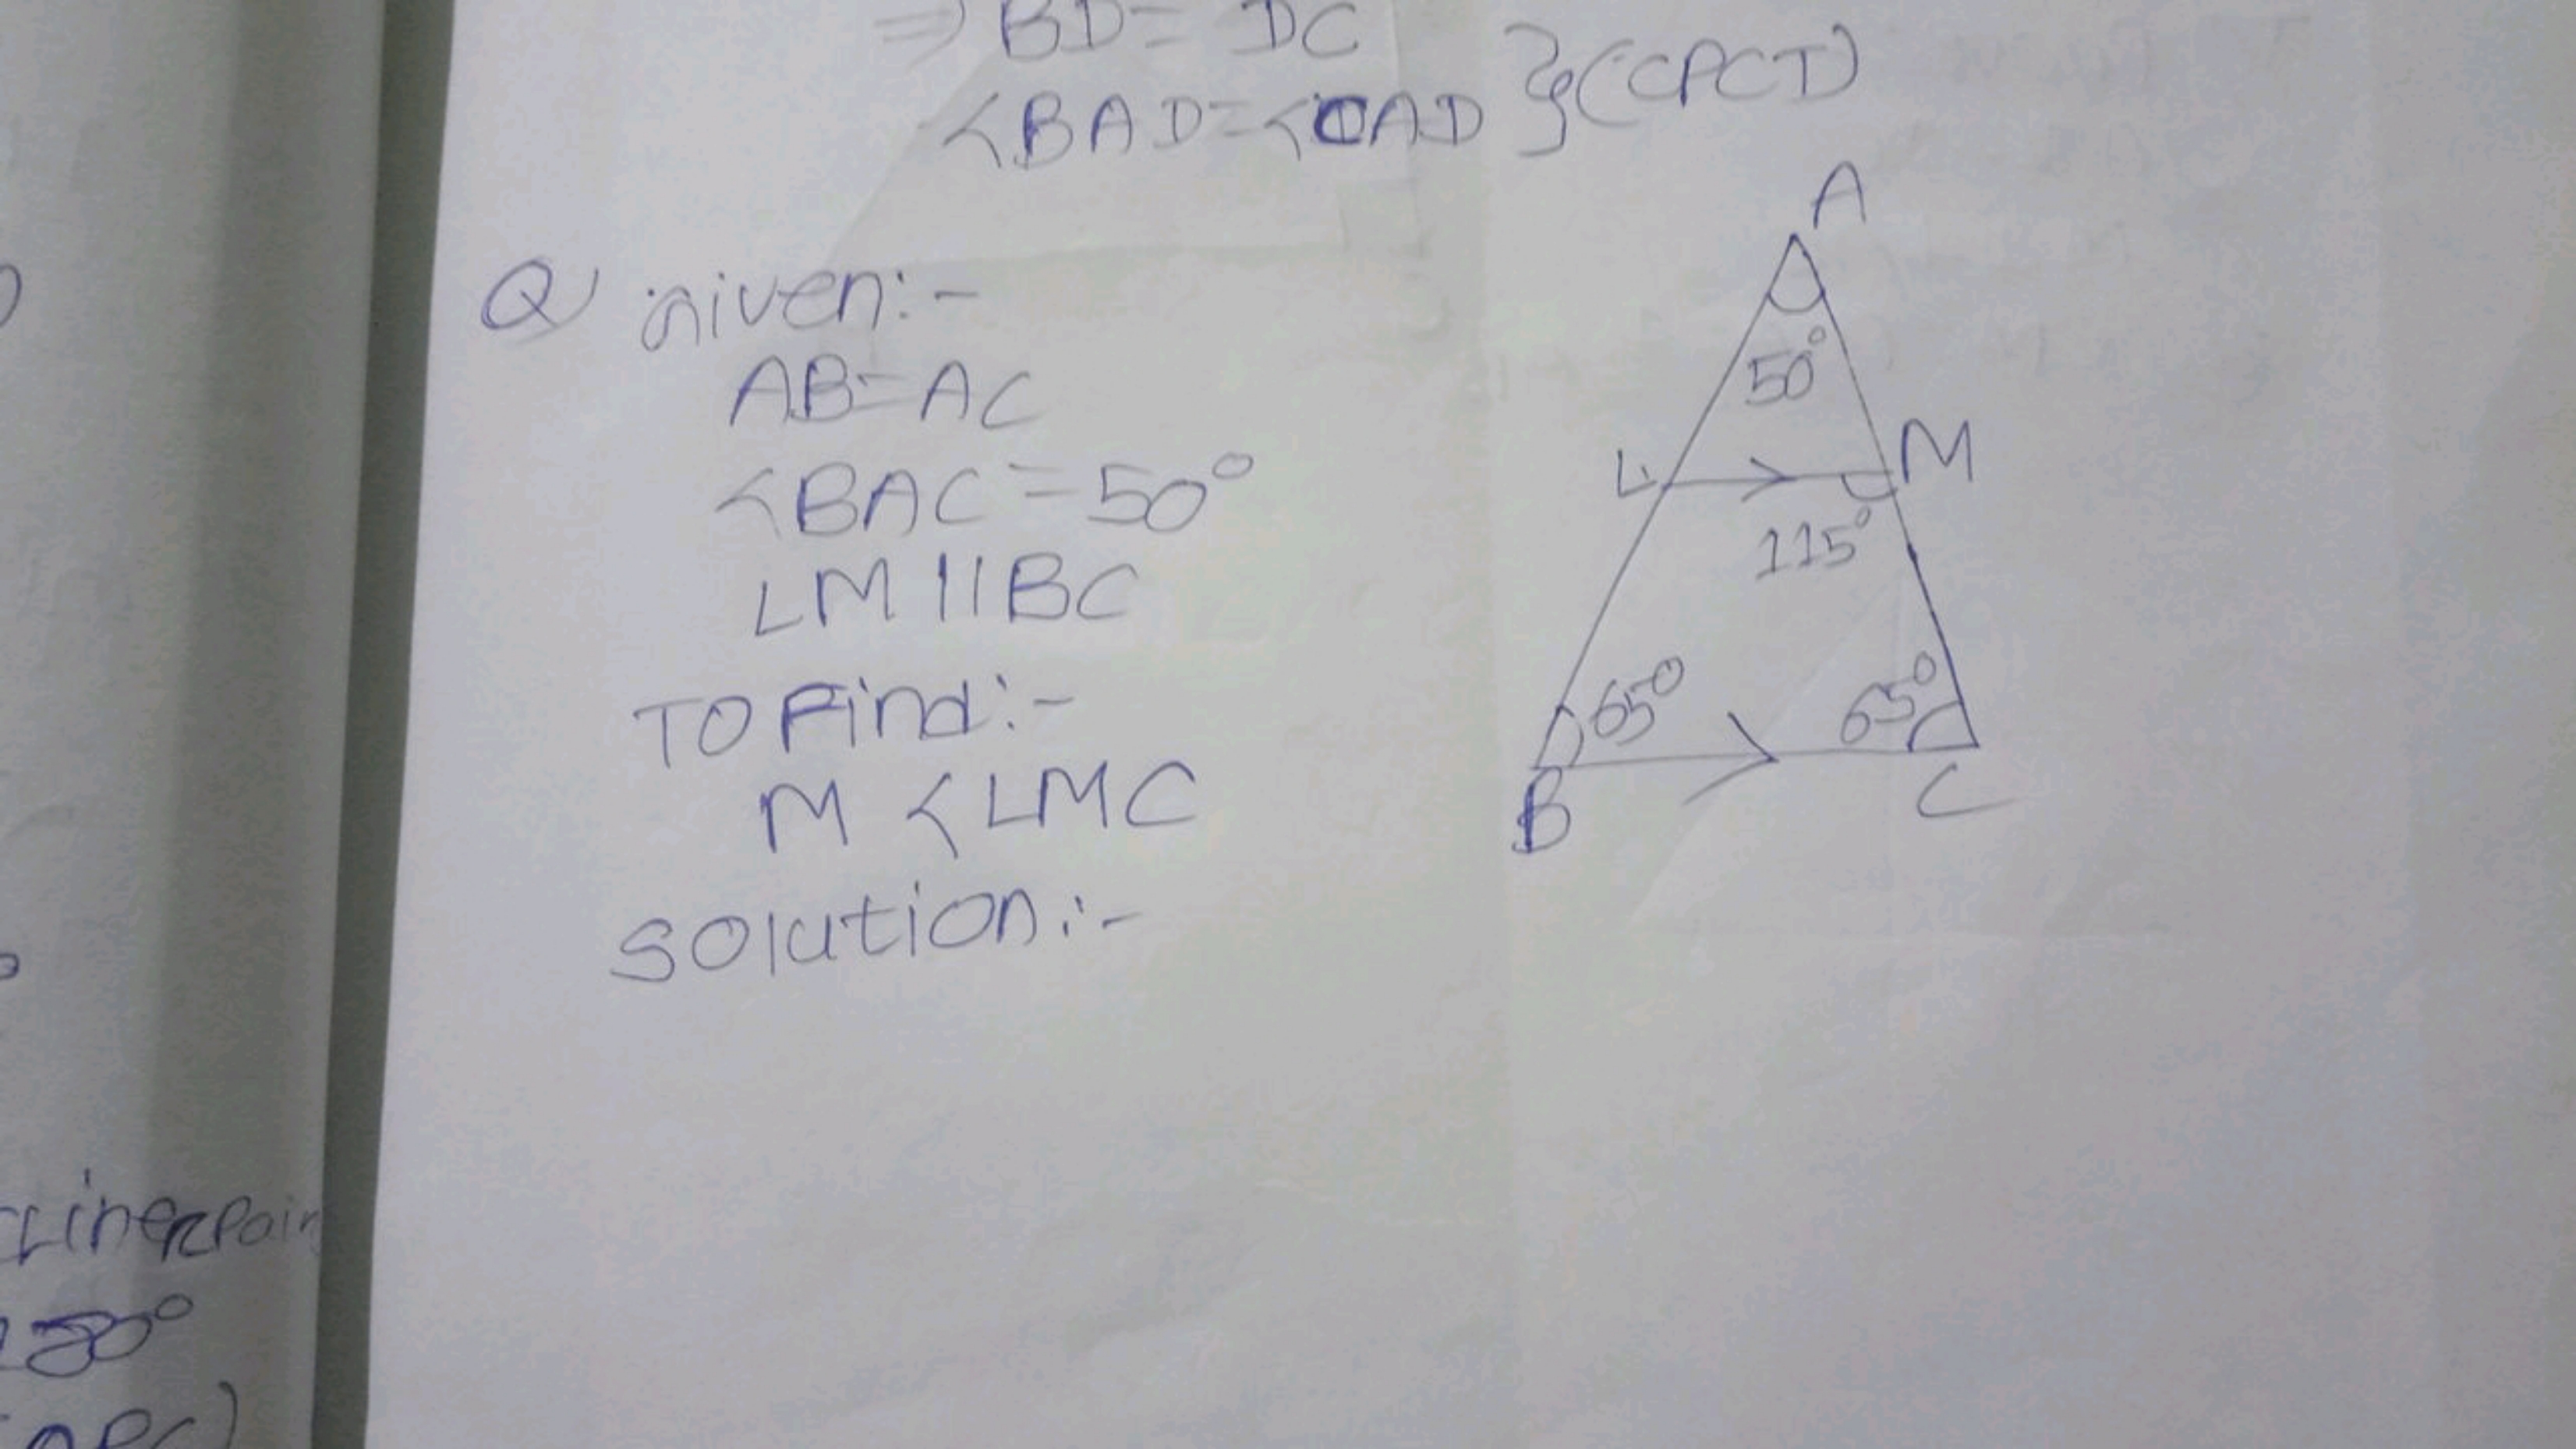 ⇒ BD = DC
<BAD = <CAD } (CPCT)
Q given:-
AB = AC
<BAC = 50°
LM || BC
TO Find:-
M <LMC
Solution:-
A
50°
L M
115°
65° 65°
B C
180°